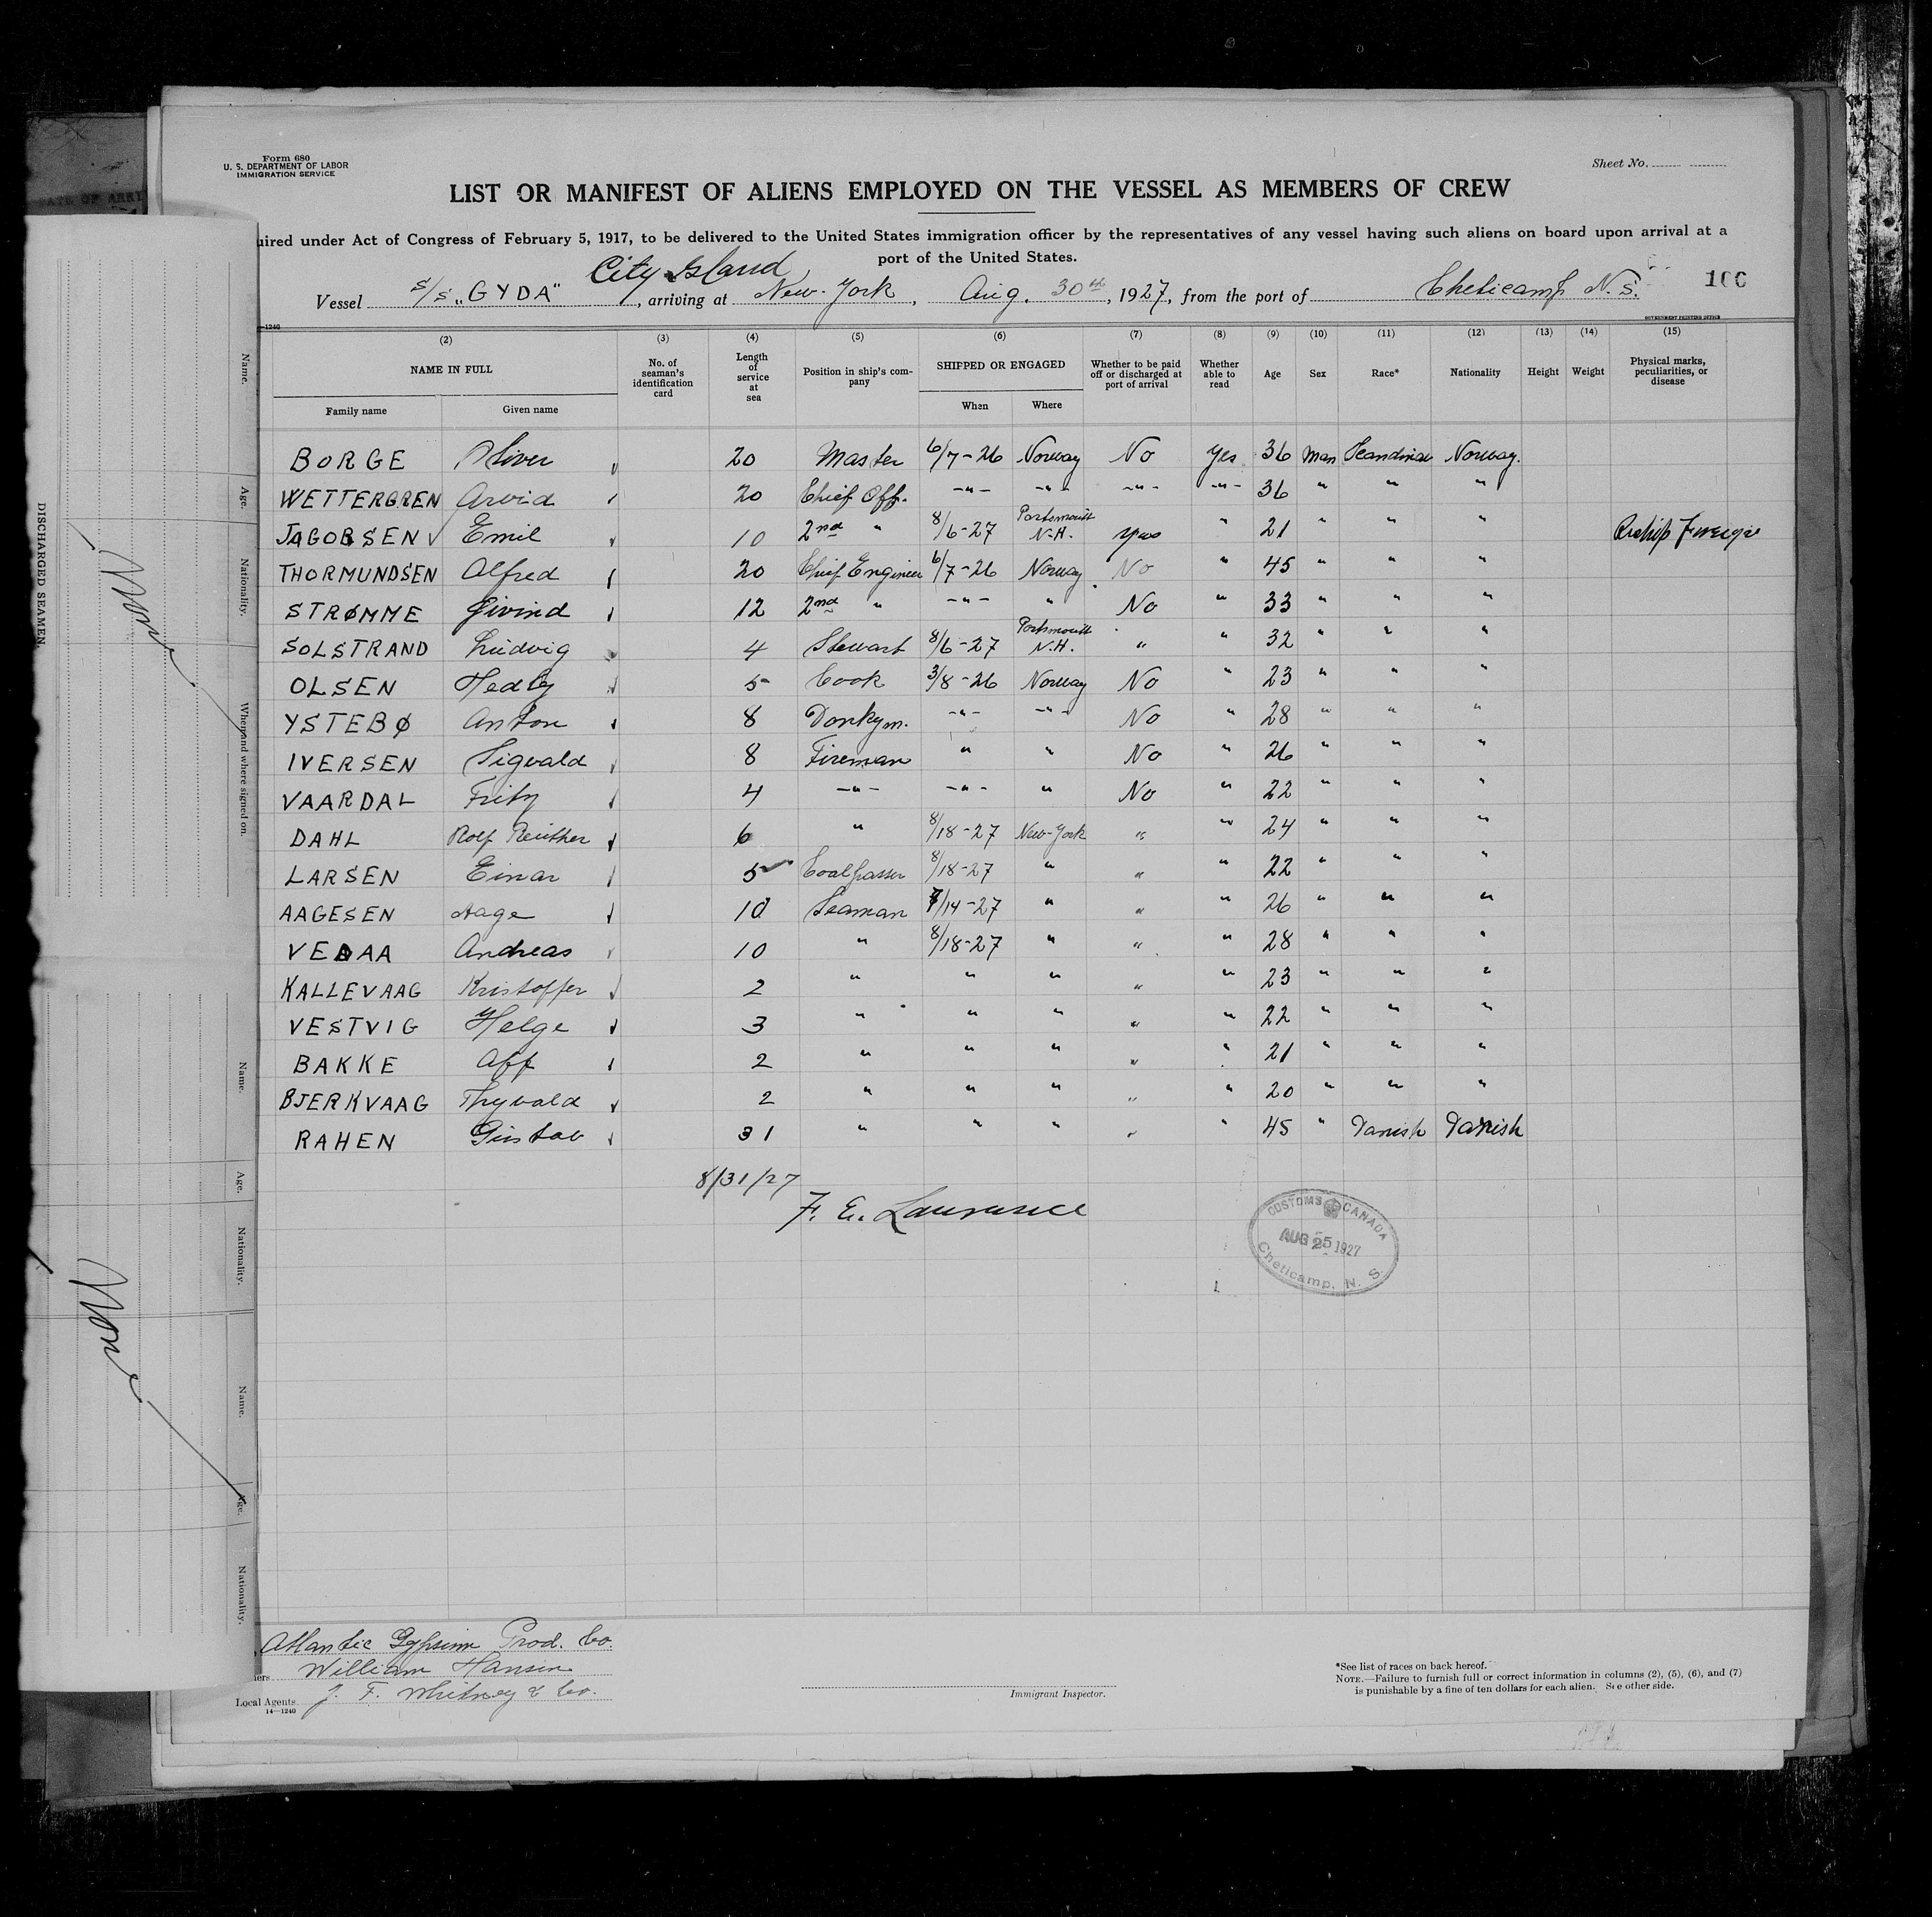 Form 680
U. S. DEPARTMENT OF LABOR
IMMIGRATION SERVICE
Sheet No.
LIST OR MANIFEST OF ALIENS EMPLOYED ON THE VESSEL AS MEMBERS OF CREW
uired under Act of Congress of February 5, 1917, to be delivered to the United States immigration officer by the representatives of any vessel having such aliens on board upon arrival at a
port of the United States.
City Island
Vessel S/S „GYDA" , arriving at New-York , Aug. 30th , 1927, from the port of Cheticamp N.S. 100
GOVERNMENT PRINTING OFFICE
—1240
(2) (3) (4) (5) (6) (7) (8) (9) (10) (11) (12) (13) (14) (15)
NAME IN FULL No. of seaman's identification card Length of service at sea Position in ship's company SHIPPED OR ENGAGED Whether to be paid off or discharged at port of arrival Whether able to read Age Sex Race* Nationality Height Weight Physical marks, peculiarities, or disease
Family name Given name When Where
BORGE Oliver 20 Master 6/7-26 Norway No Yes 36 Man Scandinav Norway.
WETTERGREN Arvid 20 Chief Off. -"- -"- -"- -"- 36 " " "
JAGOBSEN Emil 10 2nd " 8/6-27 Portsmouth N.H. yes " 21 " " "
THORMUNDSEN Alfred 20 Chief Engineer 6/7-26 Norway No " 45 " " "
STRØMME Eivind 12 2nd " -"- " No " 33 " " "
SOLSTRAND Ludvig 4 Stewart 8/6-27 Portsmouth N.H. " " 32 " " "
OLSEN Hedly 5 Cook 3/8-26 Norway No " 23 " " "
YSTEBØ Anton 8 Donkym. -"- -"- No " 28 " " "
IVERSEN Sigvald 8 Fireman " " No " 26 " " "
VAARDAL Fritz 4 -"- -"- " No " 22 " " "
DAHL Rolf Reuther 6 " 8/18-27 New-York " " 24 " " "
LARSEN Einar 5 Coalpasser 8/18-27 " " " 22 " " "
AAGESEN Aage 10 Seaman 7/14-27 " " " 26 " " "
VEDAA Andreas 10 " 8/18-27 " " " 28 " " "
KALLEVAAG Kristoffer 2 " " " " " 23 " " "
VESTVIG Helge 3 " " " " " 22 " " "
BAKKE Alf 2 " " " " " 21 " " "
BJERKVAAG Thyvald 2 " " " " " 20 " " "
RAHEN Gustav 31 " " " " " 45 " Danish Danish
8/31/27
F. E. Lawrence
CUSTOMS CANADA
AUG 25 1927
Cheticamp, N. S.
DISCHARGED SEAMEN.
Name.
Age.
Nationality.
When and where signed on.
Name.
Age.
Nationality.
Name.
Age.
Nationality.
Atlantic Gypsum Prod. Co.
ers William Hansen
Local Agents J. F. Whitney & Co.
14—1240
Immigrant Inspector.
*See list of races on back hereof.
NOTE.—Failure to furnish full or correct information in columns (2), (5), (6), and (7)
is punishable by a fine of ten dollars for each alien. See other side.